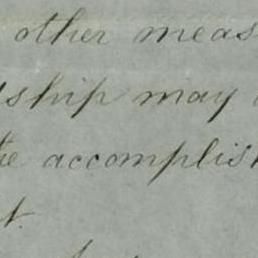 other meas
ship may
the accomplish
t.